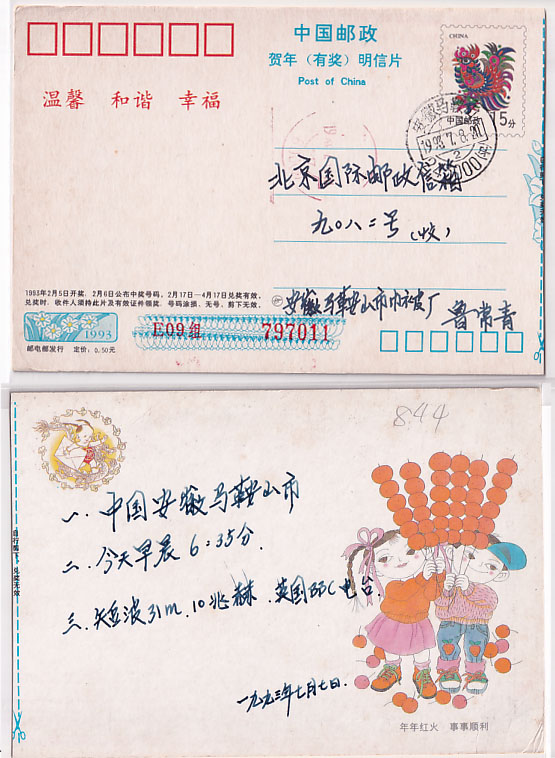 中国邮政
贺年（有奖）明信片
Post of China
CHINA
中国邮政
15分
温馨 和谐 幸福
北京国际邮政信箱
九〇八二号(收)
1993年2月5日开奖，2月6日公布中奖号码，2月17日—4月17日兑奖有效。
兑奖时，收件人须持此片及有效证件领奖，号码涂损、无号、剪下无效。
1993
E09组 797011
邮电部发行 定价：0.50元
鲁常青
844
一、中国安徽马鞍山市
二、今天早晨6:35分.
三、短波31m、10兆赫、英国BBC电台.
一九九三年七月七日.
自行撕下，兑奖无效
年年红火 事事顺利